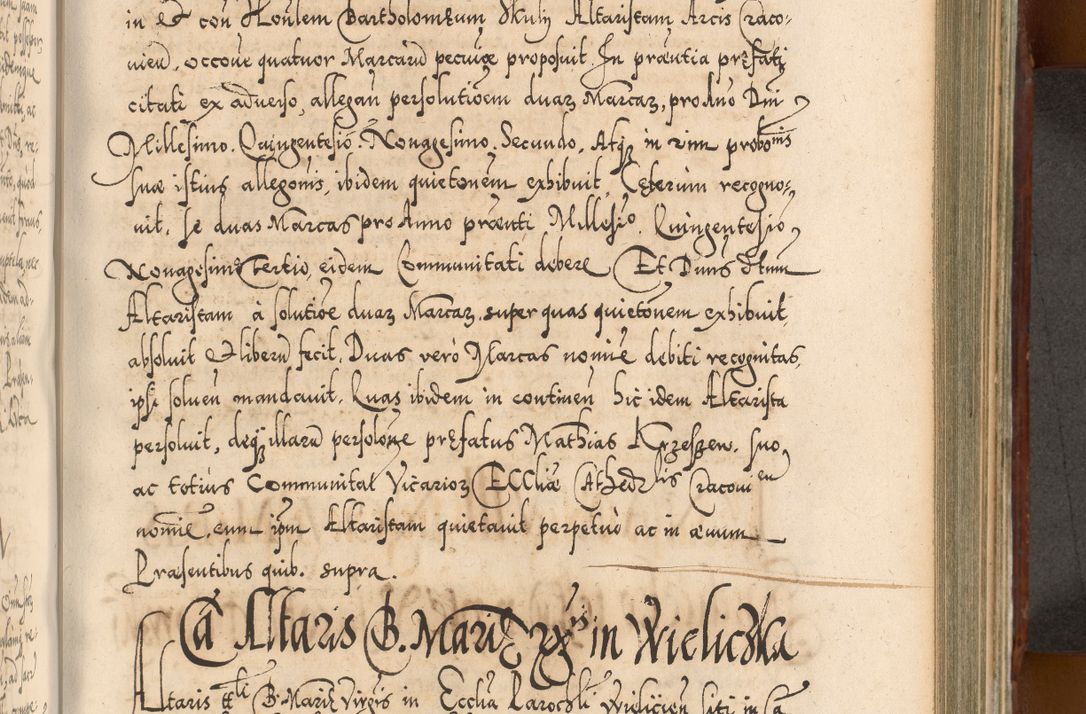 in et con Honlem Bartholomeum Skulij Altaristam Arcis Craco-
vien, occone quatuor Marcarū pecuiæ proposuit. In præntia præfati
citati ex adverso, allegan persolutioem duaꝝ Marcaꝝ, pro Año Dni
Millesimo. Quingentesio. Nonagesimo. Secundo. Atqꝫ in vim probonis
suæ istius allegonis, ibidem quietonem exhibuit. Ceterum recogno-
vit, se duas Marcas pro Anno præenti Millesio. Quingentesio
Nonagesimo Tertio, eidem Communitati debere. Et Duns
Altaristam à solutioe duaꝝ Marcaꝝ, super quas quietonem exhibuit,
absolvit et liberū fecit. Duas verò Marcas nomine debiti recognitas,
ipsi solven mandavit. Quas ibidem in continen hic idem Altarista
persolvit, deqꝫ illarū persolone præfatus Mathias Krzeszew. suo,
ac totius Communitat Vicarioꝝ Eccliæ Cathedrlis Cracovien
nomie, eum ipm Altaristam quietavit perpetuò ac in ævum
Præsentibus quib. supra.
Ca Altaris B. Mariæ Vgis in Wieliczka
Altaris ttli B. Mariæ Virgis in Ecclia Parochli Vielicien siti in Ca